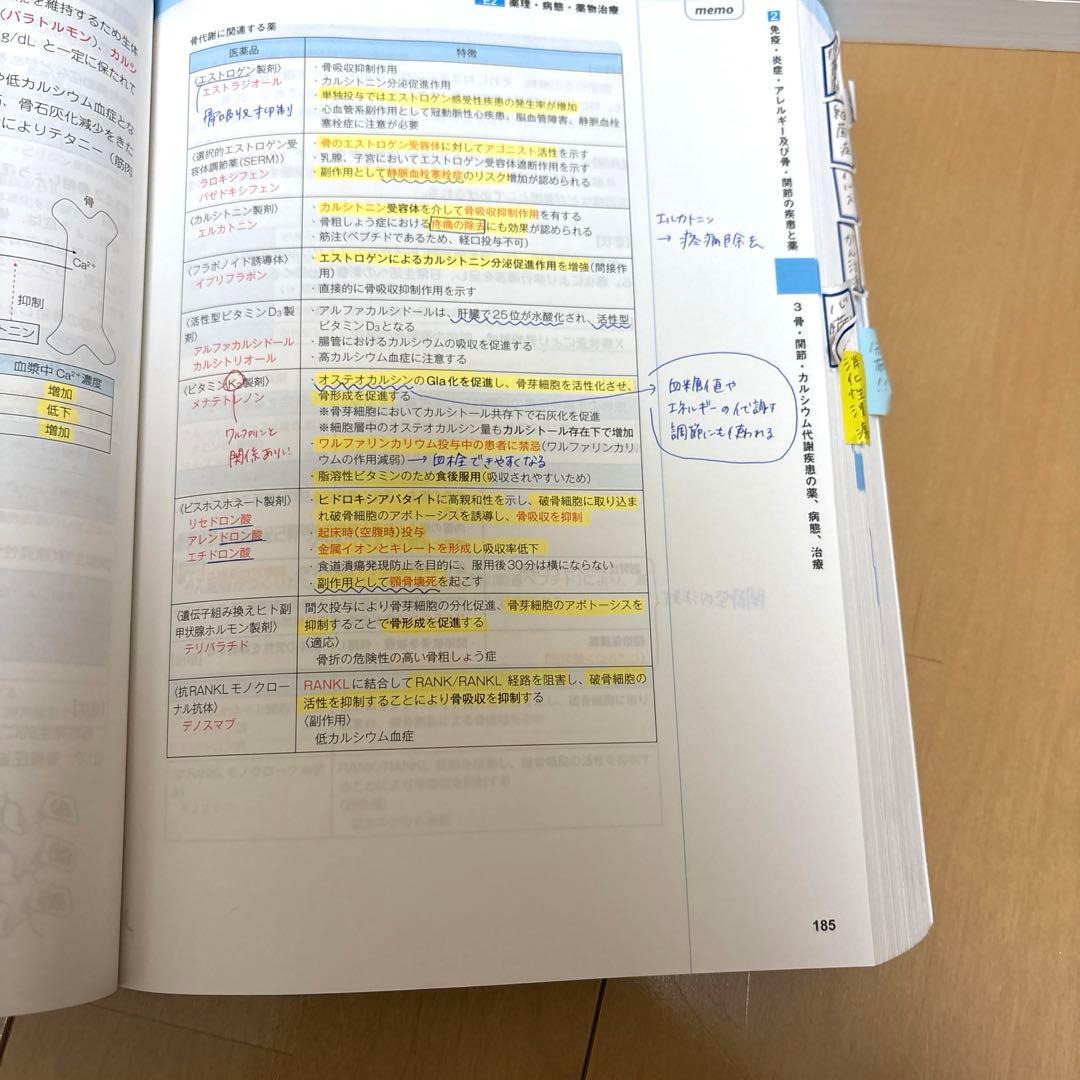 を維持するため生体
(パラトルモン)、カルシ
g/dL と一定に保たれて
や低カルシウム血症とな
、骨石灰化減少をきた
によりテタニー(筋肉
骨
Ca²⁺
抑制
トニン
血漿中 Ca²⁺濃度
増加
低下
増加
E2 薬理・病態・薬物治療
memo
骨代謝に関連する薬
医薬品
特徴
〈エストロゲン製剤〉
エストラジオール
骨吸収抑制
・骨吸収抑制作用
・カルシトニン分泌促進作用
・単独投与ではエストロゲン感受性疾患の発生率が増加
・心血管系副作用として冠動脈性心疾患、脳血管障害、静脈血栓
塞栓症に注意が必要
〈選択的エストロゲン受
容体調節薬(SERM)〉
ラロキシフェン
バゼドキシフェン
・骨のエストロゲン受容体に対してアゴニスト活性を示す
・乳腺、子宮においてエストロゲン受容体遮断作用を示す
・副作用として静脈血栓塞栓症のリスク増加が認められる
〈カルシトニン製剤〉
エルカトニン
・カルシトニン受容体を介して骨吸収抑制作用を有する
・骨粗しょう症における疼痛の除去にも効果が認められる
・筋注(ペプチドであるため、経口投与不可)
エルカトニン
→ 疼痛除去
〈フラボノイド誘導体〉
イプリフラボン
・エストロゲンによるカルシトニン分泌促進作用を増強(間接作
用)
・直接的に骨吸収抑制作用を示す
〈活性型ビタミンD₃製
剤〉
アルファカルシドール
カルシトリオール
・アルファカルシドールは、肝臓で25位が水酸化され、活性型
ビタミンD₃となる
・腸管におけるカルシウムの吸収を促進する
・高カルシウム血症に注意する
〈ビタミンK₂製剤〉
メナテトレノン
ワルファリンと
関係あり!!
・オステオカルシンのGla化を促進し、骨芽細胞を活性化させ、
骨形成を促進する
※骨芽細胞においてカルシトール共存下で石灰化を促進
※細胞層中のオステオカルシン量もカルシトール存在下で増加
・ワルファリンカリウム投与中の患者に禁忌(ワルファリンカリ
ウムの作用減弱) → 血栓できやすくなる
・脂溶性ビタミンのため食後服用(吸収されやすいため)
血糖値や
エネルギーの代謝す
調節にも使われる
〈ビスホスホネート製剤〉
リセドロン酸
アレンドロン酸
エチドロン酸
・ヒドロキシアパタイトに高親和性を示し、破骨細胞に取り込ま
れ破骨細胞のアポトーシスを誘導し、骨吸収を抑制
・起床時(空腹時)投与
・金属イオンとキレートを形成し吸収率低下
・食道潰瘍発現防止を目的に、服用後30分は横にならない
・副作用として顎骨壊死を起こす
〈遺伝子組み換えヒト副
甲状腺ホルモン製剤〉
テリパラチド
間欠投与により骨芽細胞の分化促進、骨芽細胞のアポトーシスを
抑制することで骨形成を促進する
〈適応〉
骨折の危険性の高い骨粗しょう症
〈抗RANKLモノクロー
ナル抗体〉
デノスマブ
RANKLに結合してRANK/RANKL 経路を阻害し、破骨細胞の
活性を抑制することにより骨吸収を抑制する
〈副作用〉
低カルシウム血症
2 免疫・炎症・アレルギー及び骨・関節の疾患と薬
3 骨・関節・カルシウム代謝疾患の薬、病態、治療
消化性潰瘍
185